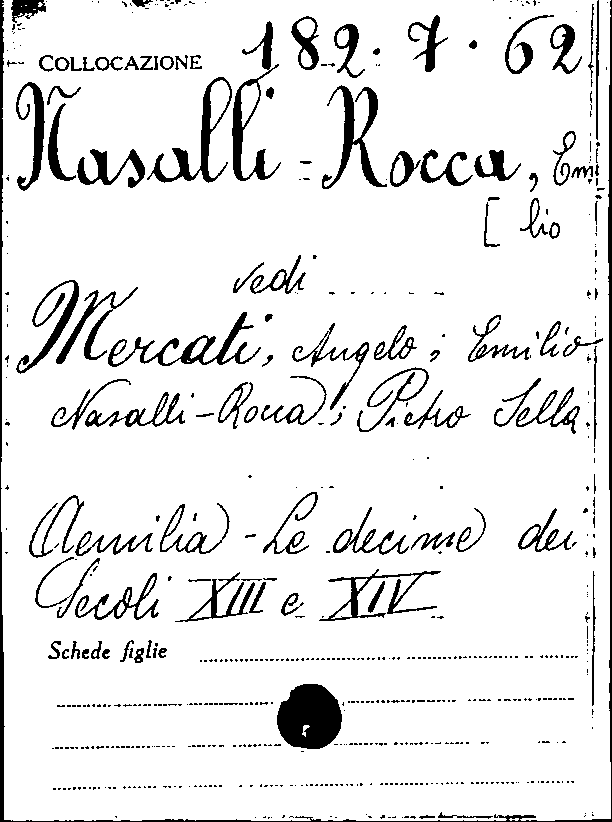 COLLOCAZIONE 182.7.62
Nasalli-Rocca, Em
[lio
vedi ......
Mercati, Angelo; Emilio
Nasalli-Rocca; Pietro Sella
Aemilia - Le decime dei
Secoli XIII e XIV
Schede figlie